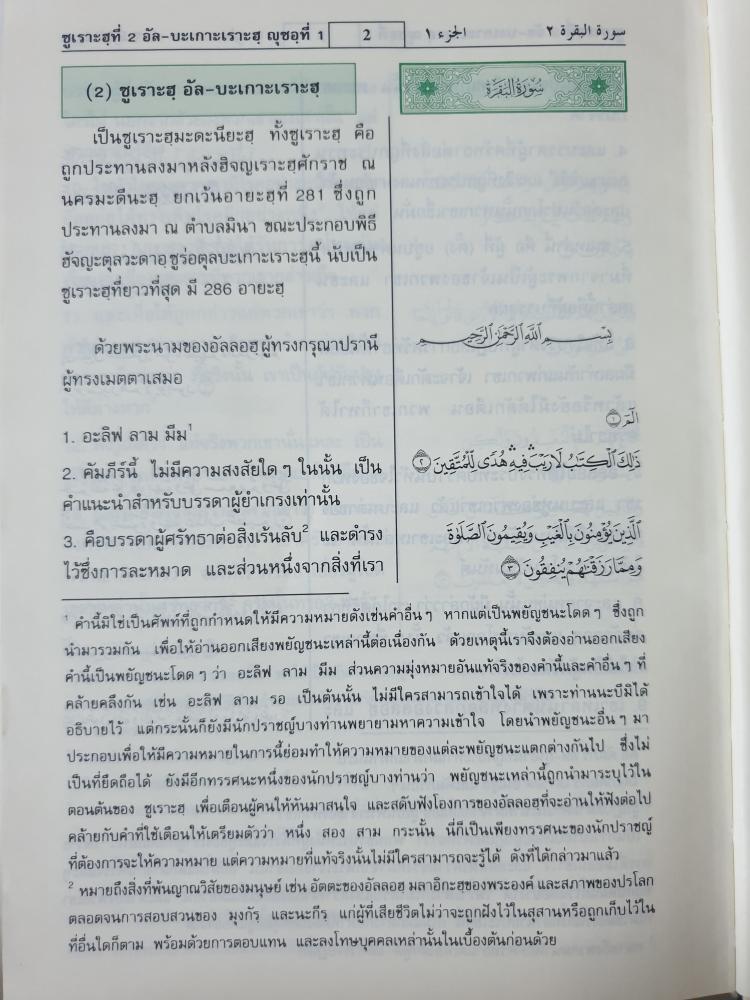 ซูเราะฮฺที่ 2 อัล-บะเกาะเราะฮฺ ญุซอฺที่ 1
2
الجزء ١
سورة البقرة ٢
(2) ซูเราะฮฺ อัล-บะเกาะเราะฮฺ
سُورَةُ البَقَرَةِ
เป็นซูเราะฮฺมะดะนียะฮฺ ทั้งซูเราะฮฺ คือ
ถูกประทานลงมาหลังฮิจญเราะฮฺศักราช ณ
นครมะดีนะฮฺ ยกเว้นอายะฮฺที่ 281 ซึ่งถูก
ประทานลงมา ณ ตำบลมินา ขณะประกอบพิธี
ฮัจญะตุลวะดาอฺ ซูร่อตุลบะเกาะเราะฮฺนี้ นับเป็น
ซูเราะฮฺที่ยาวที่สุด มี 286 อายะฮฺ
ด้วยพระนามของอัลลอฮฺ ผู้ทรงกรุณาปรานี
ผู้ทรงเมตตาเสมอ
1. อะลิฟ ลาม มีม¹
2. คัมภีร์นี้ ไม่มีความสงสัยใด ๆ ในนั้น เป็น
คำแนะนำสำหรับบรรดาผู้ยำเกรงเท่านั้น
3. คือบรรดาผู้ศรัทธาต่อสิ่งเร้นลับ² และดำรง
ไว้ซึ่งการละหมาด และส่วนหนึ่งจากสิ่งที่เรา
بِسْمِ اللَّهِ الرَّحْمَٰنِ الرَّحِيمِ
الٓمٓ ١
ذَٰلِكَ الْكِتَٰبُ لَا رَيْبَ ۛ فِيهِ ۛ هُدًى لِّلْمُتَّقِينَ ٢
الَّذِينَ يُؤْمِنُونَ بِالْغَيْبِ وَيُقِيمُونَ الصَّلَوٰةَ
وَمِمَّا رَزَقْنَٰهُمْ يُنفِقُونَ ٣
¹ คำนี้มิใช่เป็นศัพท์ที่ถูกกำหนดให้มีความหมายดังเช่นคำอื่น ๆ หากแต่เป็นพยัญชนะโดด ๆ ซึ่งถูก
นำมารวมกัน เพื่อให้อ่านออกเสียงพยัญชนะเหล่านี้ต่อเนื่องกัน ด้วยเหตุนี้เราจึงต้องอ่านออกเสียง
คำนี้เป็นพยัญชนะโดด ๆ ว่า อะลิฟ ลาม มีม ส่วนความมุ่งหมายอันแท้จริงของคำนี้และคำอื่น ๆ ที่
คล้ายคลึงกัน เช่น อะลิฟ ลาม รอ เป็นต้นนั้น ไม่มีใครสามารถเข้าใจได้ เพราะท่านนะบีมิได้
อธิบายไว้ แต่กระนั้นก็ยังมีนักปราชญ์บางท่านพยายามหาความเข้าใจ โดยนำพยัญชนะอื่น ๆ มา
ประกอบเพื่อให้มีความหมายในการนี้ย่อมทำให้ความหมายของแต่ละพยัญชนะแตกต่างกันไป ซึ่งไม่
เป็นที่ยึดถือได้ ยังมีอีกทรรศนะหนึ่งของนักปราชญ์บางท่านว่า พยัญชนะเหล่านี้ถูกนำมาระบุไว้ใน
ตอนต้นของ ซูเราะฮฺ เพื่อเตือนผู้คนให้หันมาสนใจ และสดับฟังโองการของอัลลอฮฺที่จะอ่านให้ฟังต่อไป
คล้ายกับคำที่ใช้เตือนให้เตรียมตัวว่า หนึ่ง สอง สาม กระนั้น นี่ก็เป็นเพียงทรรศนะของนักปราชญ์
ที่ต้องการจะให้ความหมาย แต่ความหมายที่แท้จริงนั้นไม่มีใครสามารถจะรู้ได้ ดังที่ได้กล่าวมาแล้ว
² หมายถึงสิ่งที่พ้นญาณวิสัยของมนุษย์ เช่น อัตตะของอัลลอฮฺ มลาอิกะฮฺของพระองค์ และสภาพของปรโลก
ตลอดจนการสอบสวนของ มุงกัรฺ และนะกีรฺ แก่ผู้ที่เสียชีวิตไม่ว่าจะถูกฝังไว้ในสุสานหรือถูกเก็บไว้ใน
ที่อื่นใดก็ตาม พร้อมด้วยการตอบแทน และลงโทษบุคคลเหล่านั้นในเบื้องต้นก่อนด้วย